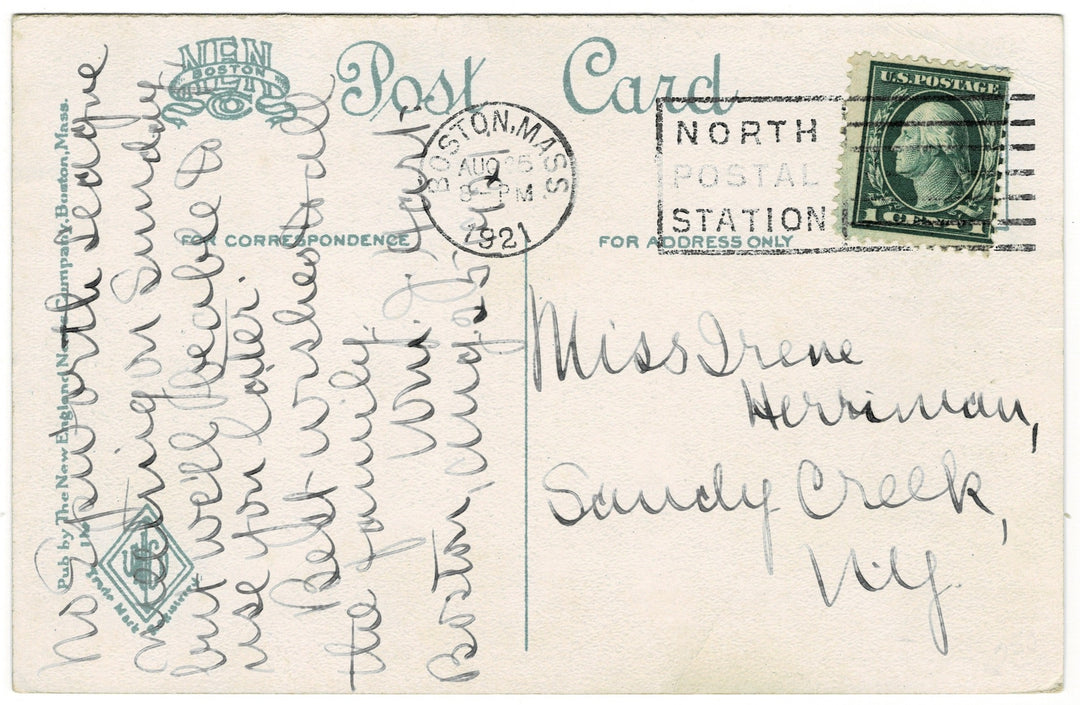 Post Card
NEN
BOSTON
FOR CORRESPONDENCE
FOR ADDRESS ONLY
Pub by The New England News Company, Boston, Mass.
Trade Mark
BOSTON, MASS
AUG 25
PM
1921
NORTH
POSTAL
STATION
U.S. POSTAGE
1 CENT 1
No Epworth League
meeting on Sunday
but we'll be able to
use it on later.
Best wishes to all
the family.
Wm. J. Hart
Boston, Aug. 25, 1921
Miss Irene
Herriman,
Sandy Creek,
N.Y.